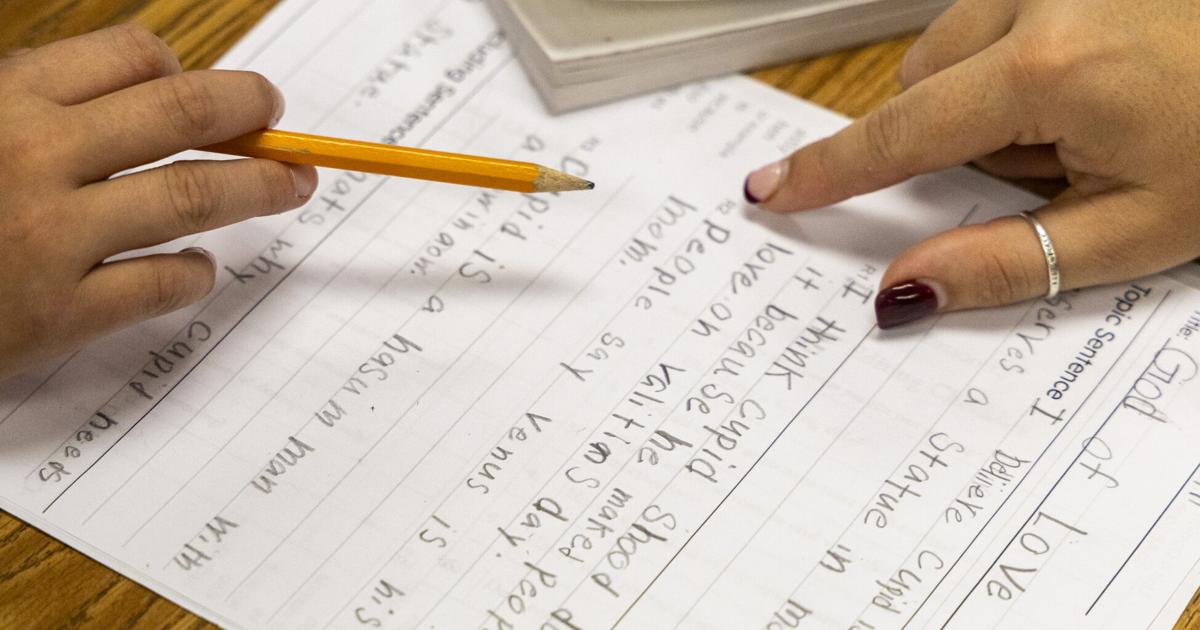 God of Love
Topic Sentence I Beliieve Cupid
serves a Statue in
R1: I think Cupid Shood
it because he maked
love. on valitians day.
R2 People say Venus is his
mom.
R3 Cupid is a hasum man with
a
Sentence thats why Cupid needs
Statue.